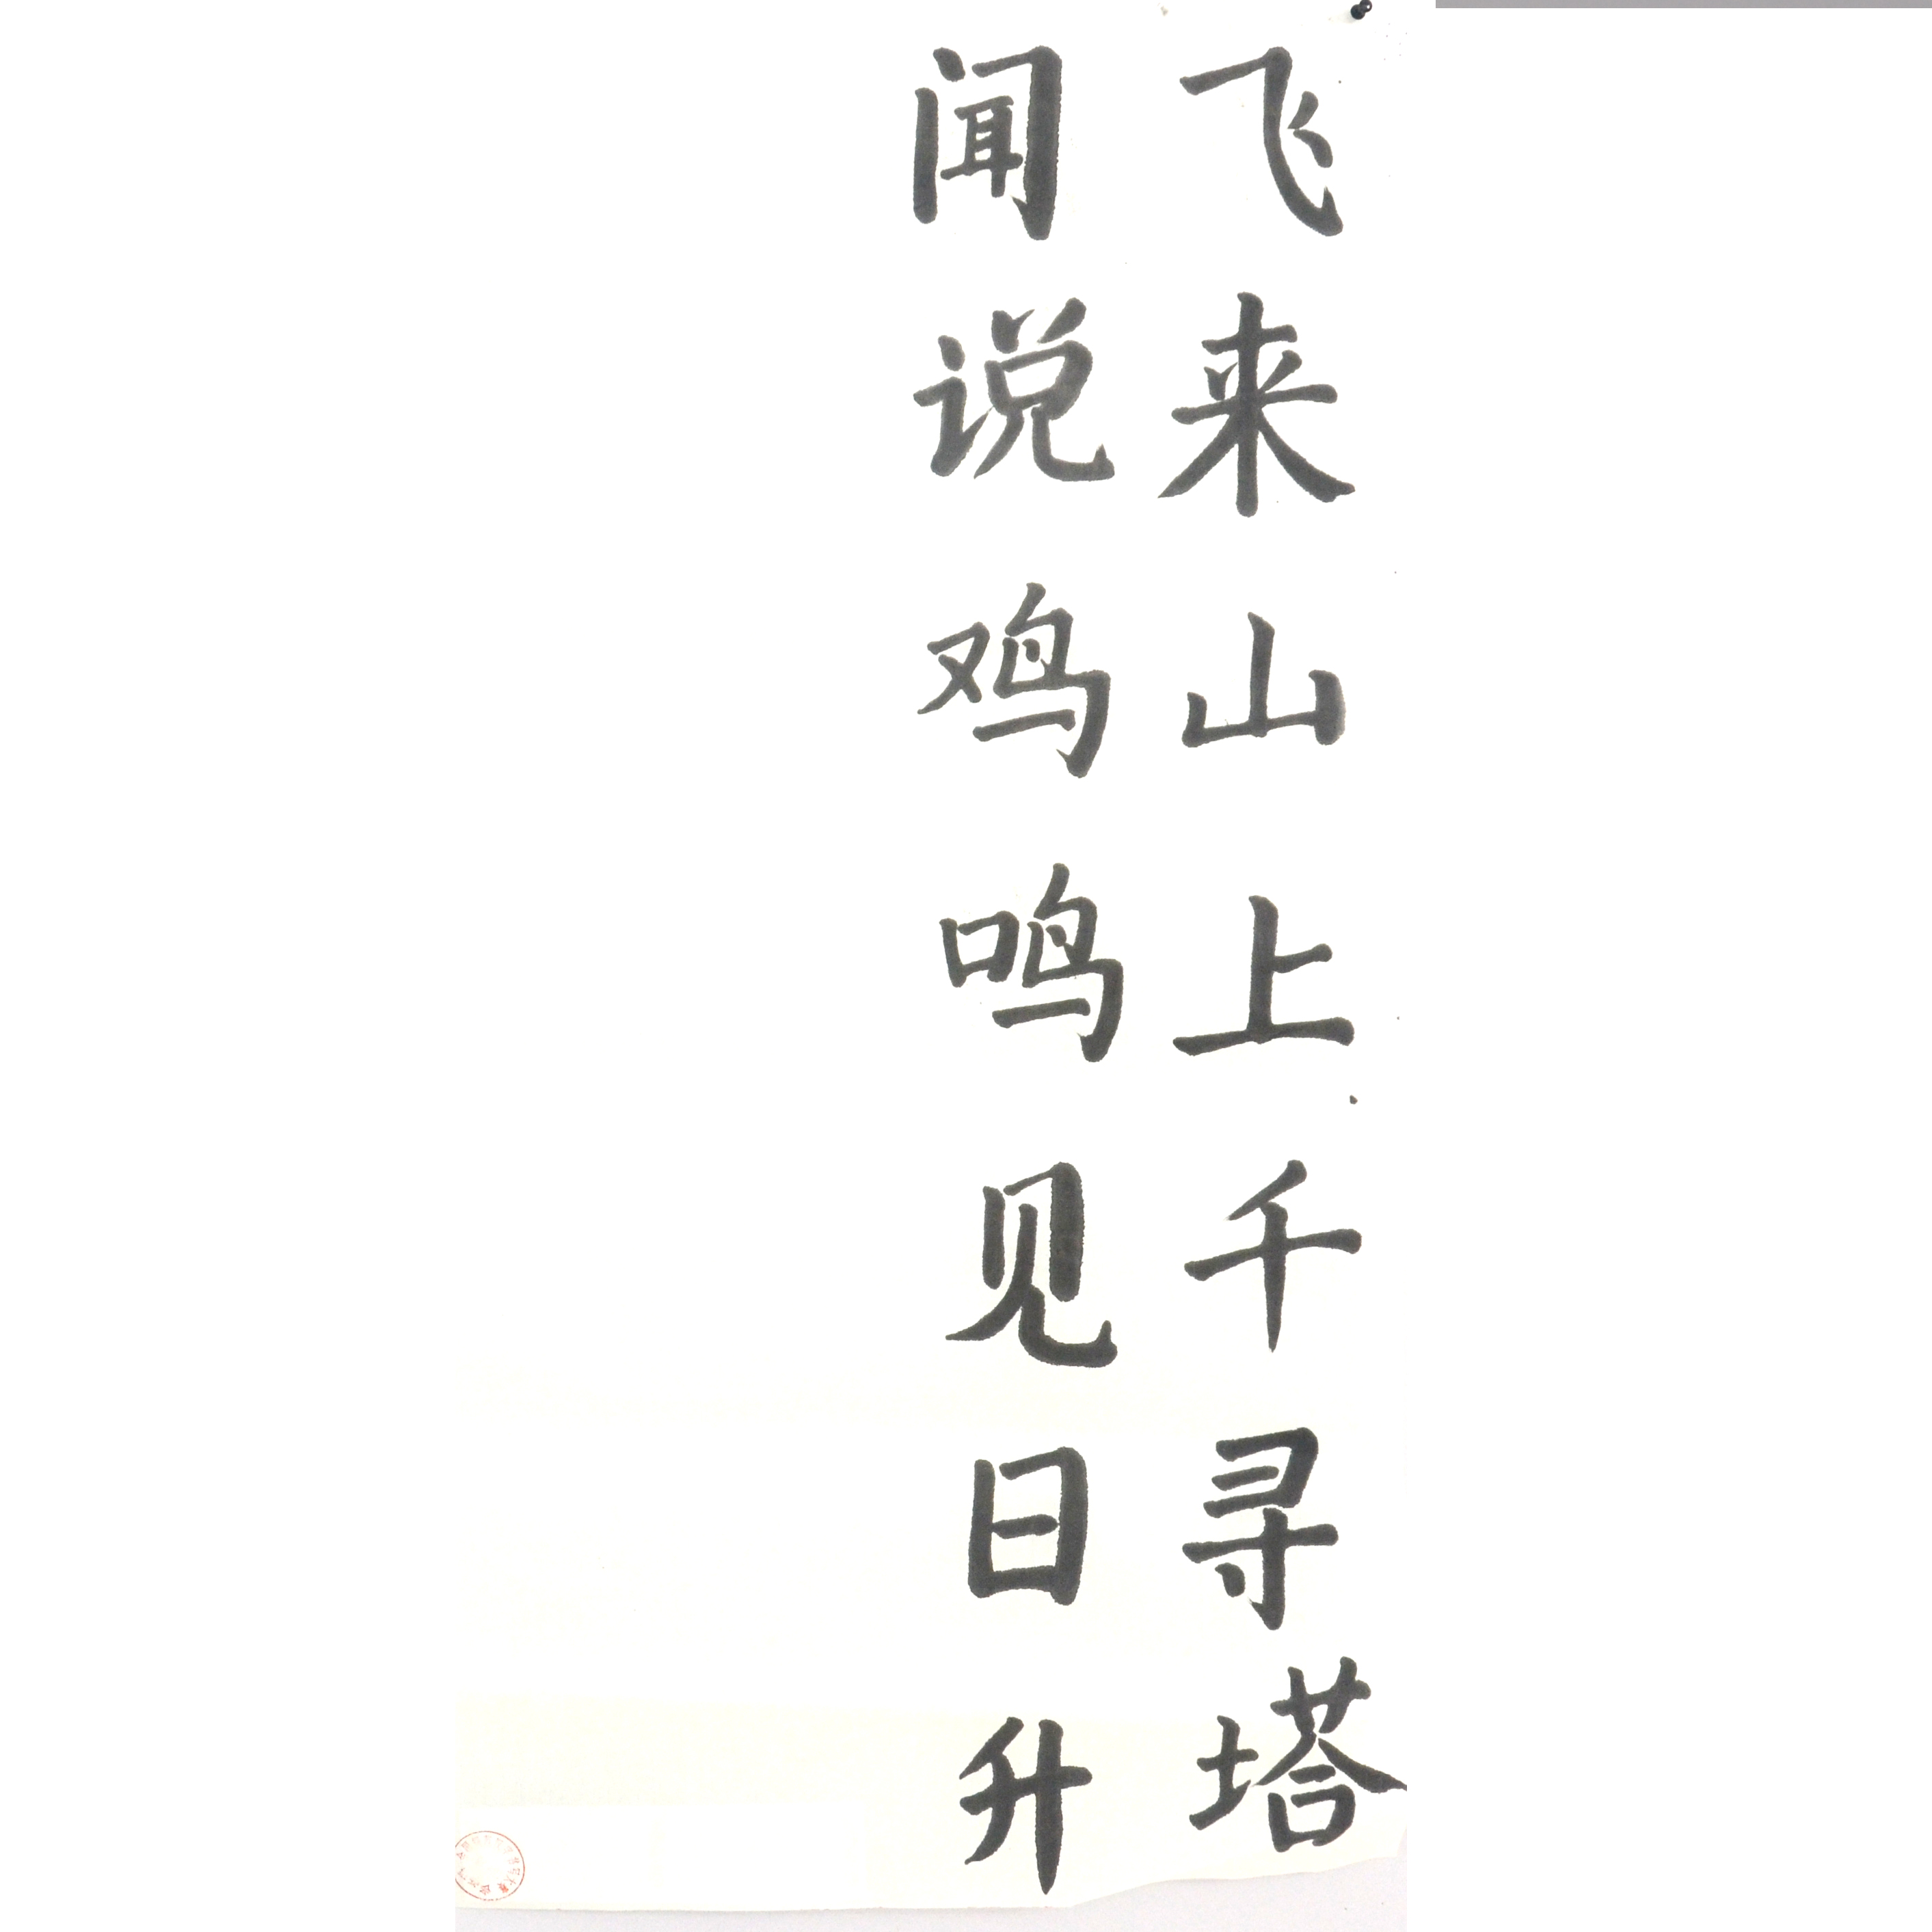 飞来山上千寻塔
闻说鸡鸣见日升